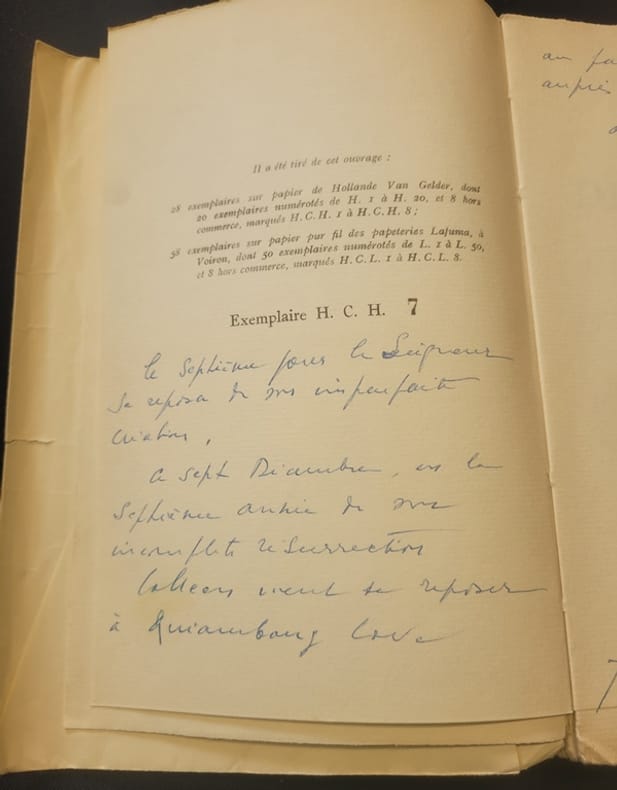 Il a été tiré de cet ouvrage :
28 exemplaires sur papier de Hollande Van Gelder, dont
20 exemplaires numérotés de H. 1 à H. 20, et 8 hors
commerce, marqués H.C.H. 1 à H.C.H. 8 ;
58 exemplaires sur papier pur fil des papeteries Lafuma, à
Voiron, dont 50 exemplaires numérotés de L. 1 à L. 50,
et 8 hors commerce, marqués H.C.L. 1 à H.C.L. 8.
Exemplaire H. C. H. 7
Le septième jour le Seigneur
se reposa de son imparfaite
création,
Ce sept Décembre, en la
septième année de son
incomplète résurrection
vient se reposer
à Quiambaug Cove
au
auprès